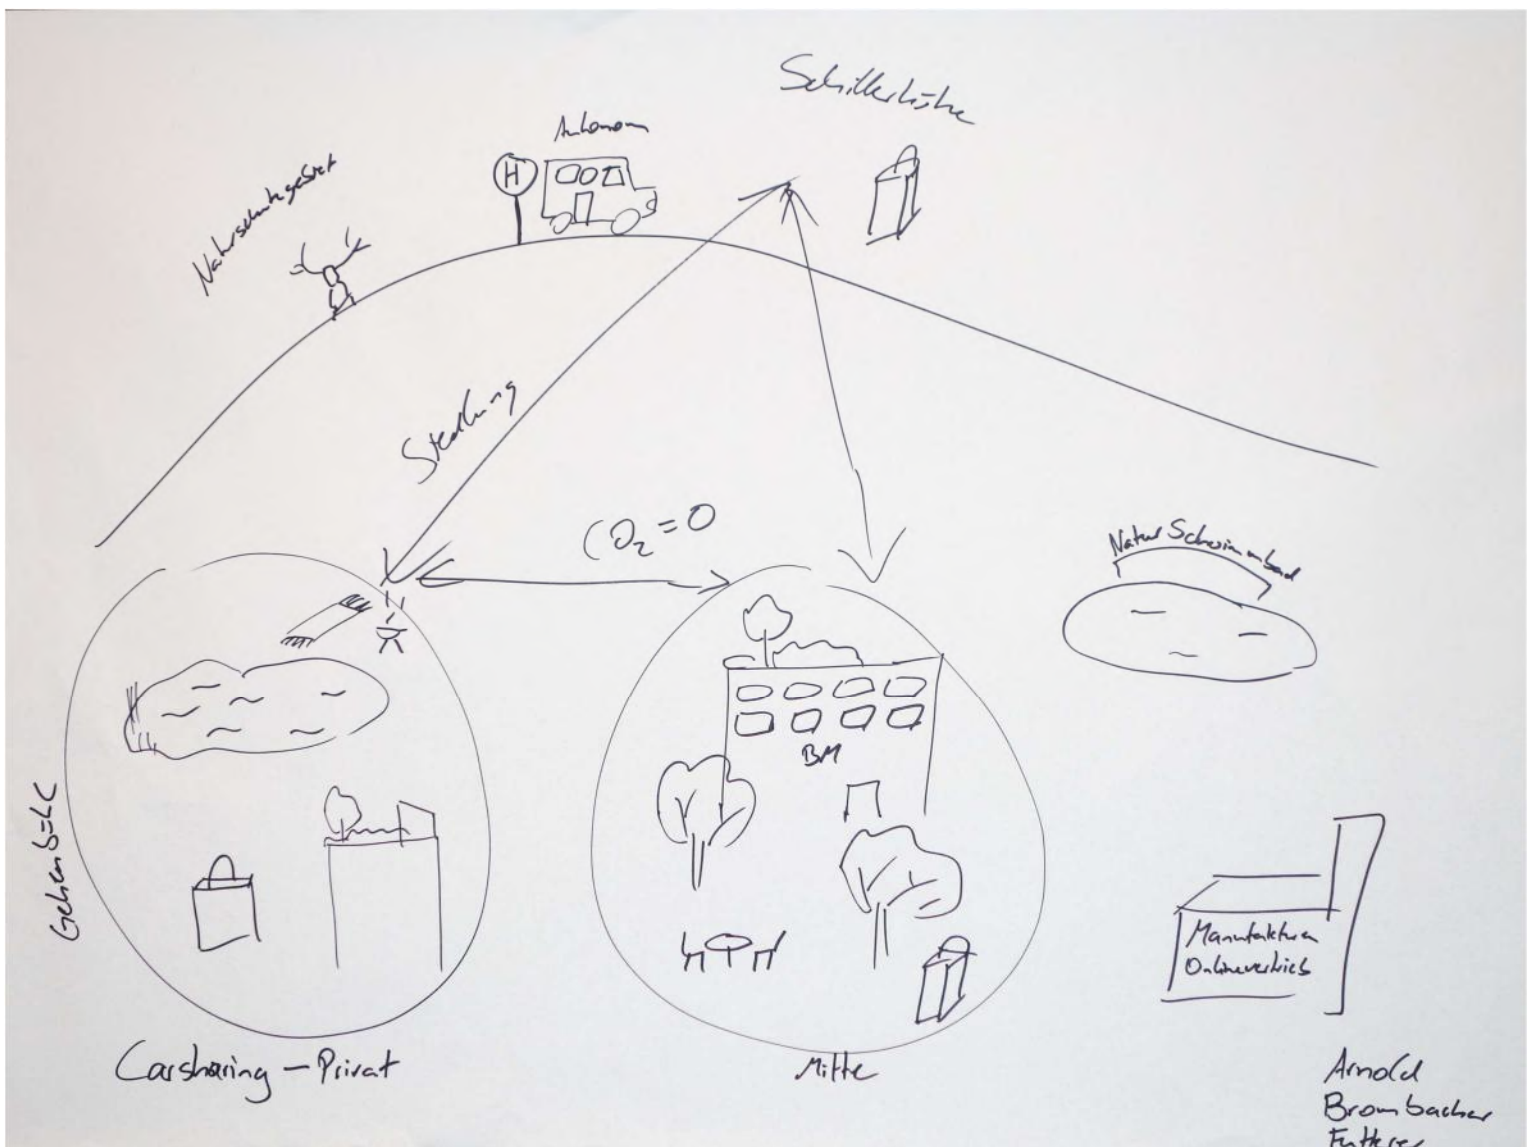 Schillerhöhe
Autonom
H
Naturschutzgebiet
Siedlung
CO₂=0
Natur Schwimmbad
BM
Manufakturen
Onlinevertrieb
Carsharing - Privat
Mitte
Arnold
Brombacher